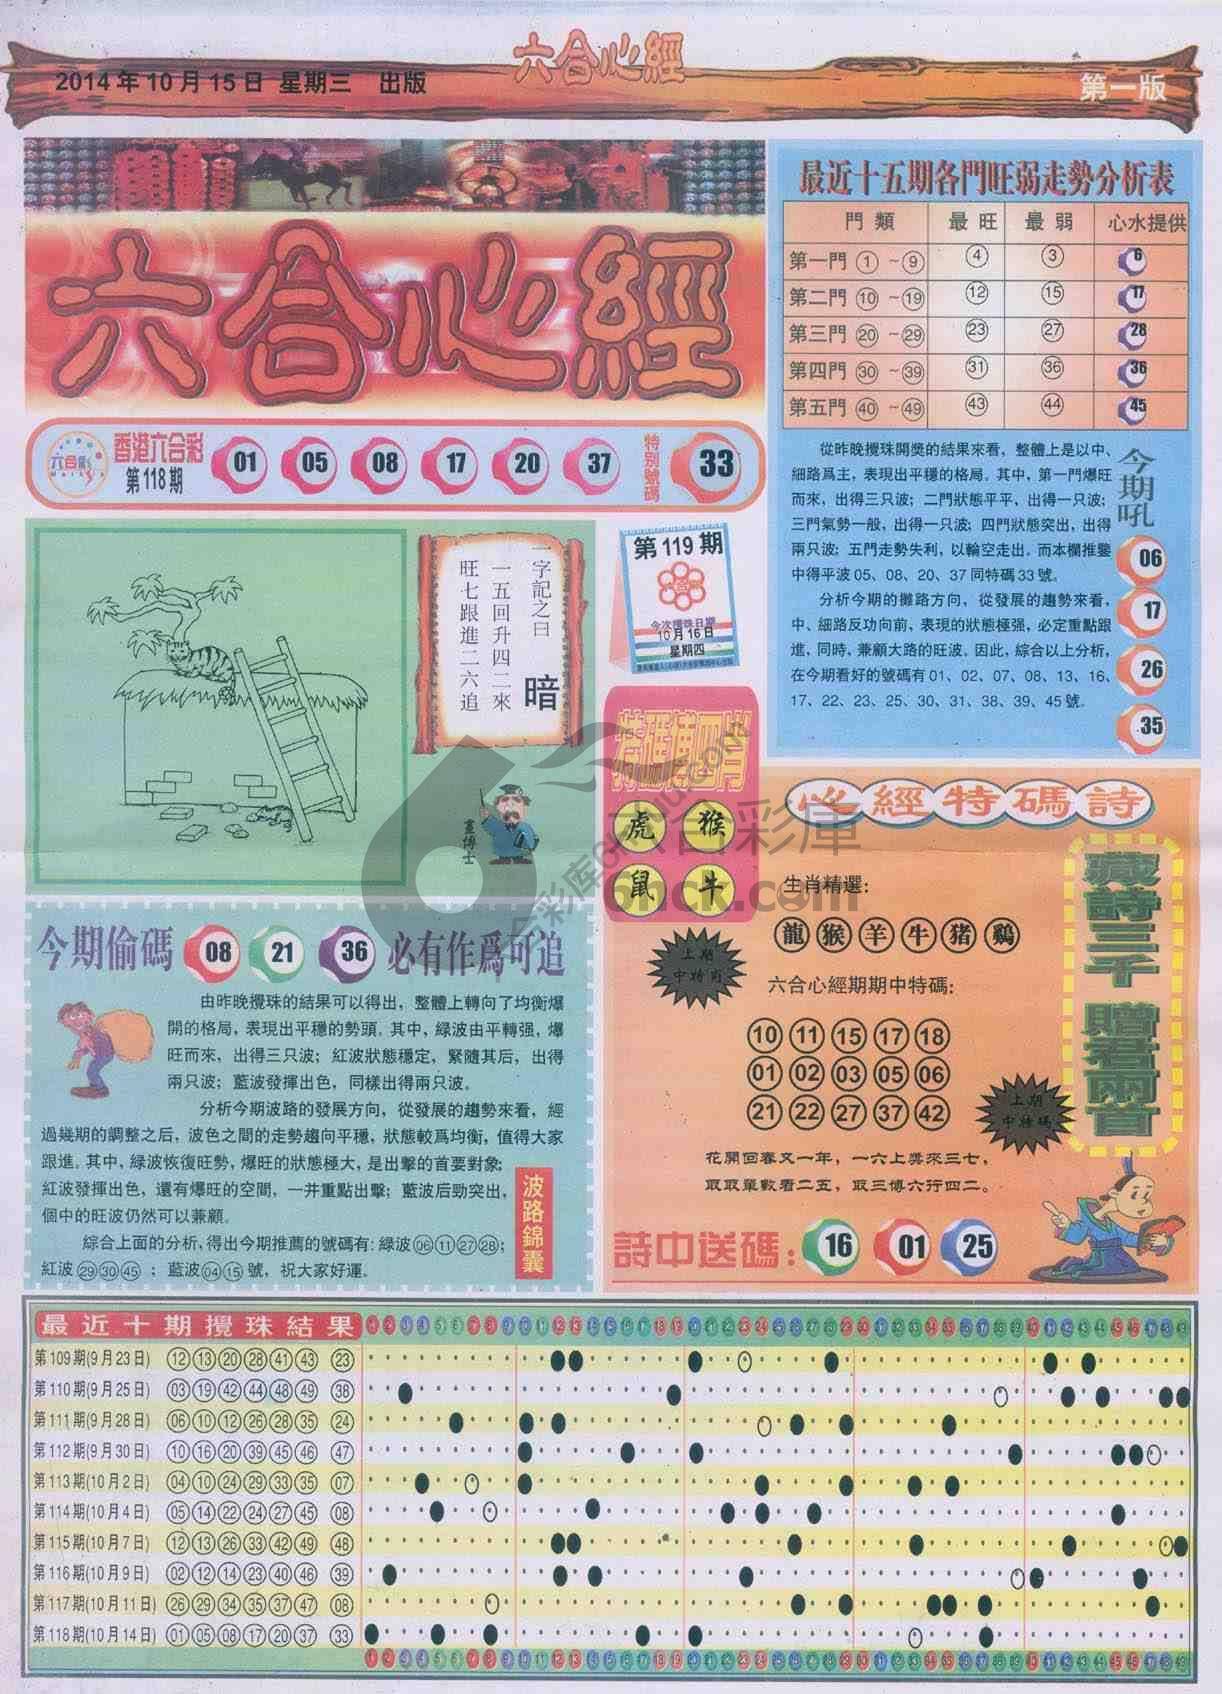 2014年10月15日 星期三 出版
六合心經
第一版
六合心經
六合彩
香港六合彩
第118期
01 05 08 17 20 37
特别號碼
33
最近十五期各門旺弱走勢分析表
門類 最旺 最弱 心水提供
第一門 1 ~ 9 4 3 6
第二門 10 ~ 19 12 15 17
第三門 20 ~ 29 23 27 28
第四門 30 ~ 39 31 36 36
第五門 40 ~ 49 43 44 45
從昨晚攪珠開獎的結果來看，整體上是以中、
細路爲主，表現出平穩的格局。其中，第一門爆旺
而來，出得三只波；二門狀態平平、出得一只波；
三門氣勢一般，出得一只波；四門狀態突出，出得
兩只波；五門走勢失利，以輪空走出。而本欄推鑒
中得平波05、08、20、37同特碼33號。
分析今期的攤路方向，從發展的趨勢來看，
中、細路反功向前，表現的狀態極强，必定重點跟
進，同時，兼顧大路的旺波。因此，綜合以上分析，
在今期看好的號碼有01、02、07、08、13、16、
17、22、23、25、30、31、38、39、45號。
今期吼
06
17
26
35
一字記之曰
暗
一五回升四二來
旺七跟進二六追
畫博士
第119期
今次攪珠日期
10月16日
星期四
特碼博四肖
虎 猴
鼠 牛
今期偷碼 08 21 36 必有作爲可追
由昨晚攪珠的結果可以得出，整體上轉向了均衡爆
開的格局，表現出平穩的勢頭。其中，緑波由平轉强，爆
旺而來，出得三只波；紅波狀態穩定，緊隨其后，出得
兩只波；藍波發揮出色，同樣出得兩只波。
分析今期波路的發展方向，從發展的趨勢來看，經
過幾期的調整之后，波色之間的走勢趨向平穩，狀態較爲均衡，值得大家
跟進。其中，緑波恢復旺勢，爆旺的狀態極大，是出擊的首要對象；
紅波發揮出色，還有爆旺的空間，一并重點出擊；藍波后勁突出，
個中的旺波仍然可以兼顧。
綜合上面的分析，得出今期推薦的號碼有：緑波06 11 27 28；
紅波29 30 45；藍波04 15號，祝大家好運。
波路錦囊
心經特碼詩
生肖精選：
龍 猴 羊 牛 猪 鷄
上期
中特肖
六合心經期期中特碼：
10 11 15 17 18
01 02 03 05 06
21 22 27 37 42
上期
中特碼
藏詩三千 贈君兩首
花開回春又一年，一六上奖來三七，
取取單數看二五，取三博六行四二。
詩中送碼：16 01 25
六合彩庫
6hck.com
最近十期攪珠結果
第109期(9月23日) 12 13 20 28 41 43 23
第110期(9月25日) 03 19 42 44 48 49 38
第111期(9月28日) 06 10 12 26 28 35 24
第112期(9月30日) 10 16 20 39 45 46 47
第113期(10月2日) 04 10 24 29 33 35 07
第114期(10月4日) 05 14 22 24 27 45 08
第115期(10月7日) 12 13 26 33 42 49 48
第116期(10月9日) 02 12 14 23 40 46 39
第117期(10月11日) 26 29 34 35 37 47 08
第118期(10月14日) 01 05 08 17 20 37 33